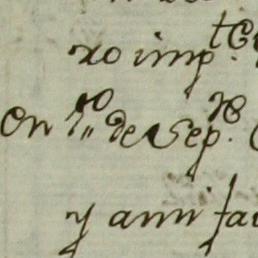 ro imp.te
on 1.ro de Sep.re
y ami fa